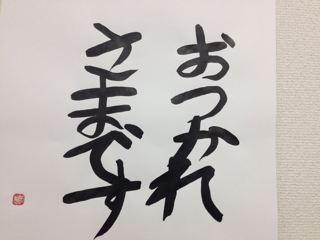 おつかれ
さまです